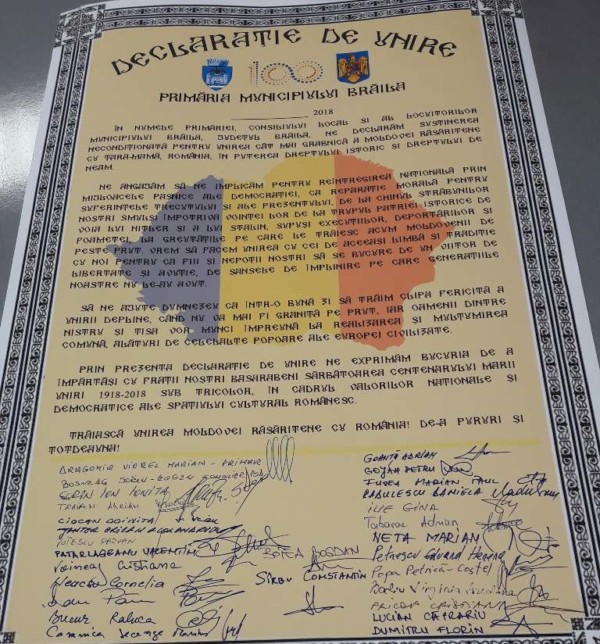 DECLARAȚIE DE UNIRE
100
PRIMĂRIA MUNICIPIULUI BRĂILA
2018
ÎN NUMELE PRIMĂRIEI, CONSILIULUI LOCAL ȘI AL LOCUITORILOR
MUNICIPIULUI BRĂILA, JUDEȚUL BRĂILA, NE DECLARĂM SUSȚINEREA
NECONDIȚIONATĂ PENTRU UNIREA CÂT MAI GRABNICĂ A MOLDOVEI RĂSĂRITENE
CU ȚARA-MAMĂ, ROMÂNIA, ÎN PUTEREA DREPTULUI ISTORIC ȘI DREPTULUI DE
NEAM.
NE ANGAJĂM SĂ NE IMPLICĂM PENTRU REÎNTREGIREA NAȚIONALĂ PRIN
MIJLOACELE PAȘNICE ALE DEMOCRAȚIEI, CA REPARAȚIE MORALĂ PENTRU
SUFERINȚELE TRECUTULUI ȘI ALE PREZENTULUI, DE LA CHINUL STRĂBUNILOR
NOȘTRI SMULȘI ÎMPOTRIVA VOINȚEI LOR DE LA TRUPUL PATRIEI ISTORICE DE
VOIA LUI HITLER ȘI A LUI STALIN, SUPUȘI EXECUȚIILOR, DEPORTĂRILOR ȘI
FOAMETEI, LA GREUTĂȚILE PE CARE LE TRĂIESC ACUM MOLDOVENII DE
PESTE PRUT. VREM SĂ FACEM UNIREA CU CEI DE ACEEAȘI LIMBĂ ȘI TRADIȚIE
CU NOI PENTRU CA FIII ȘI NEPOȚII NOȘTRI SĂ SE BUCURE DE UN VIITOR DE
LIBERTATE ȘI AVUȚIE, DE ȘANSELE DE ÎMPLINIRE PE CARE GENERAȚIILE
NOASTRE NU LE-AU AVUT.
SĂ NE AJUTE DUMNEZEU CA ÎNTR-O BUNĂ ZI SĂ TRĂIM CLIPA FERICITĂ A
UNIRII DEPLINE, CÂND NU VA MAI FI GRANIȚĂ PE PRUT, IAR OAMENII DINTRE
NISTRU ȘI TISA VOR MUNCI ÎMPREUNĂ LA REALIZAREA ȘI MULȚUMIREA
COMUNĂ, ALĂTURI DE CELELALTE POPOARE ALE EUROPEI CIVILIZATE.
PRIN PREZENTA DECLARAȚIE DE UNIRE NE EXPRIMĂM BUCURIA DE A
ÎMPĂRTĂȘI CU FRAȚII NOȘTRI BASARABENI SĂRBĂTOAREA CENTENARULUI MARII
UNIRI 1918-2018 SUB TRICOLOR, ÎN CADRUL VALORILOR NAȚIONALE ȘI
DEMOCRATICE ALE SPAȚIULUI CULTURAL ROMÂNESC.
TRĂIASCĂ UNIREA MOLDOVEI RĂSĂRITENE CU ROMÂNIA! DE-A PURURI ȘI
TOTDEAUNA!
DRAGOMIR VIOREL MARIAN - PRIMAR
TRAIAN ADRIAN
CIOCAN DOINIȚA
PATARLAGEANU VALENTIN
BOTEA BOGDAN
Voinea Cristiana
Neacșu Cornelia
SÎRBU CONSTANTIN
Dan Pan
Bucur Raluca
GOANȚĂ ADRIAN
GOJAN PETRU
FUREA MARIAN PAUL
RĂDULESCU DANIELA
ILIE GINA
Tabarac Adrian
NEȚA MARIAN
Petrescu Eduard
Popa Petrică-Costel
Badiu Virginia
LUCIAN CĂPRARIU
DUMITRU FLORIN